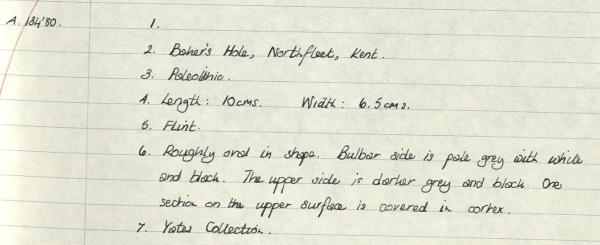 A. 184'80.
1.
2. Baker's Hole, Northfleet, Kent.
3. Paleolithic.
4. Length: 10cms. Width: 6.5cms.
5. Flint.
6. Roughly oval in shape. Bulbar side is pale grey with white
and black. The upper side is darker grey and black. One
section on the upper surface is covered in cortex.
7. Yates Collection.